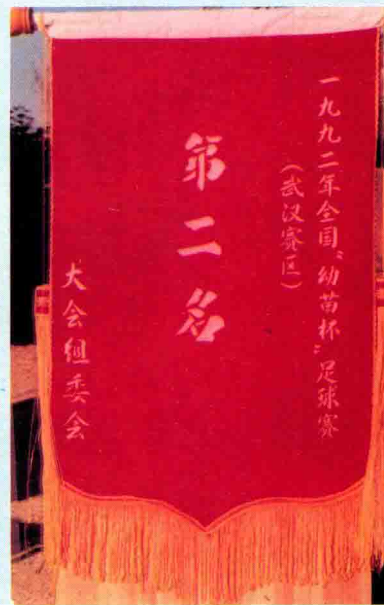 一九九二年全国“幼苗杯”足球赛
（武汉赛区）
第二名
大会组委会